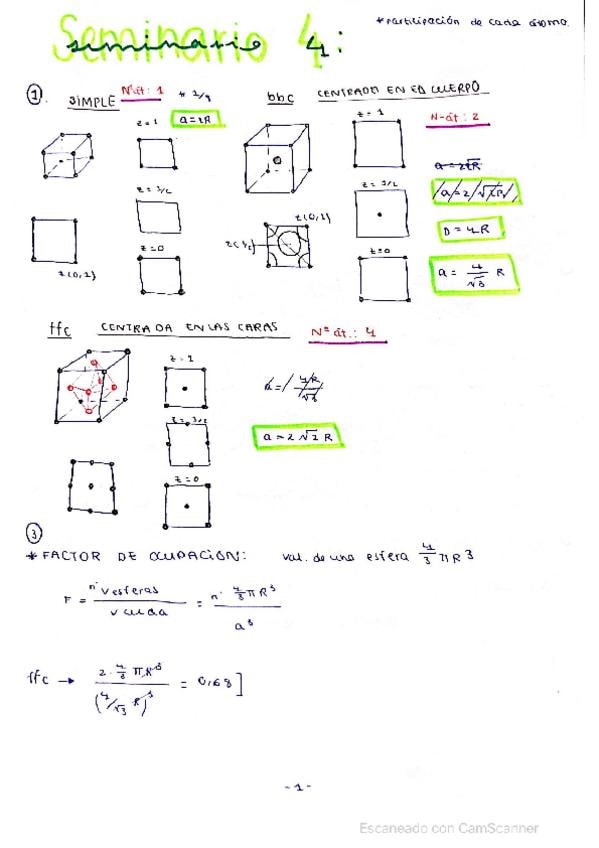 Seminario 4:
seminario 4:
*Participación de cada átomo.
① SIMPLE Nºát: 1 * 1/8
z=1 a=2R
z=1/2
z=0
z(0,1)
bbc CENTRADO EN EL CUERPO
z=1 N-át: 2
a=2R
z=1/2
D=4R
z(0,1)
z(1/2)
z=0
a= 4/√3 R
ffc CENTRADA EN LAS CARAS Nº át.: 4
z=1
z=1/2
a=2√2 R
z=0
③
* FACTOR DE OCUPACION: vol. de una esfera 4/3 πR³
F = nº v esferas / v celda = nº 4/3 πR³ / a³
ffc → 2·4/3 πR³ / (4/√3 R)³ = 0,68]
-1-
Escaneado con CamScanner